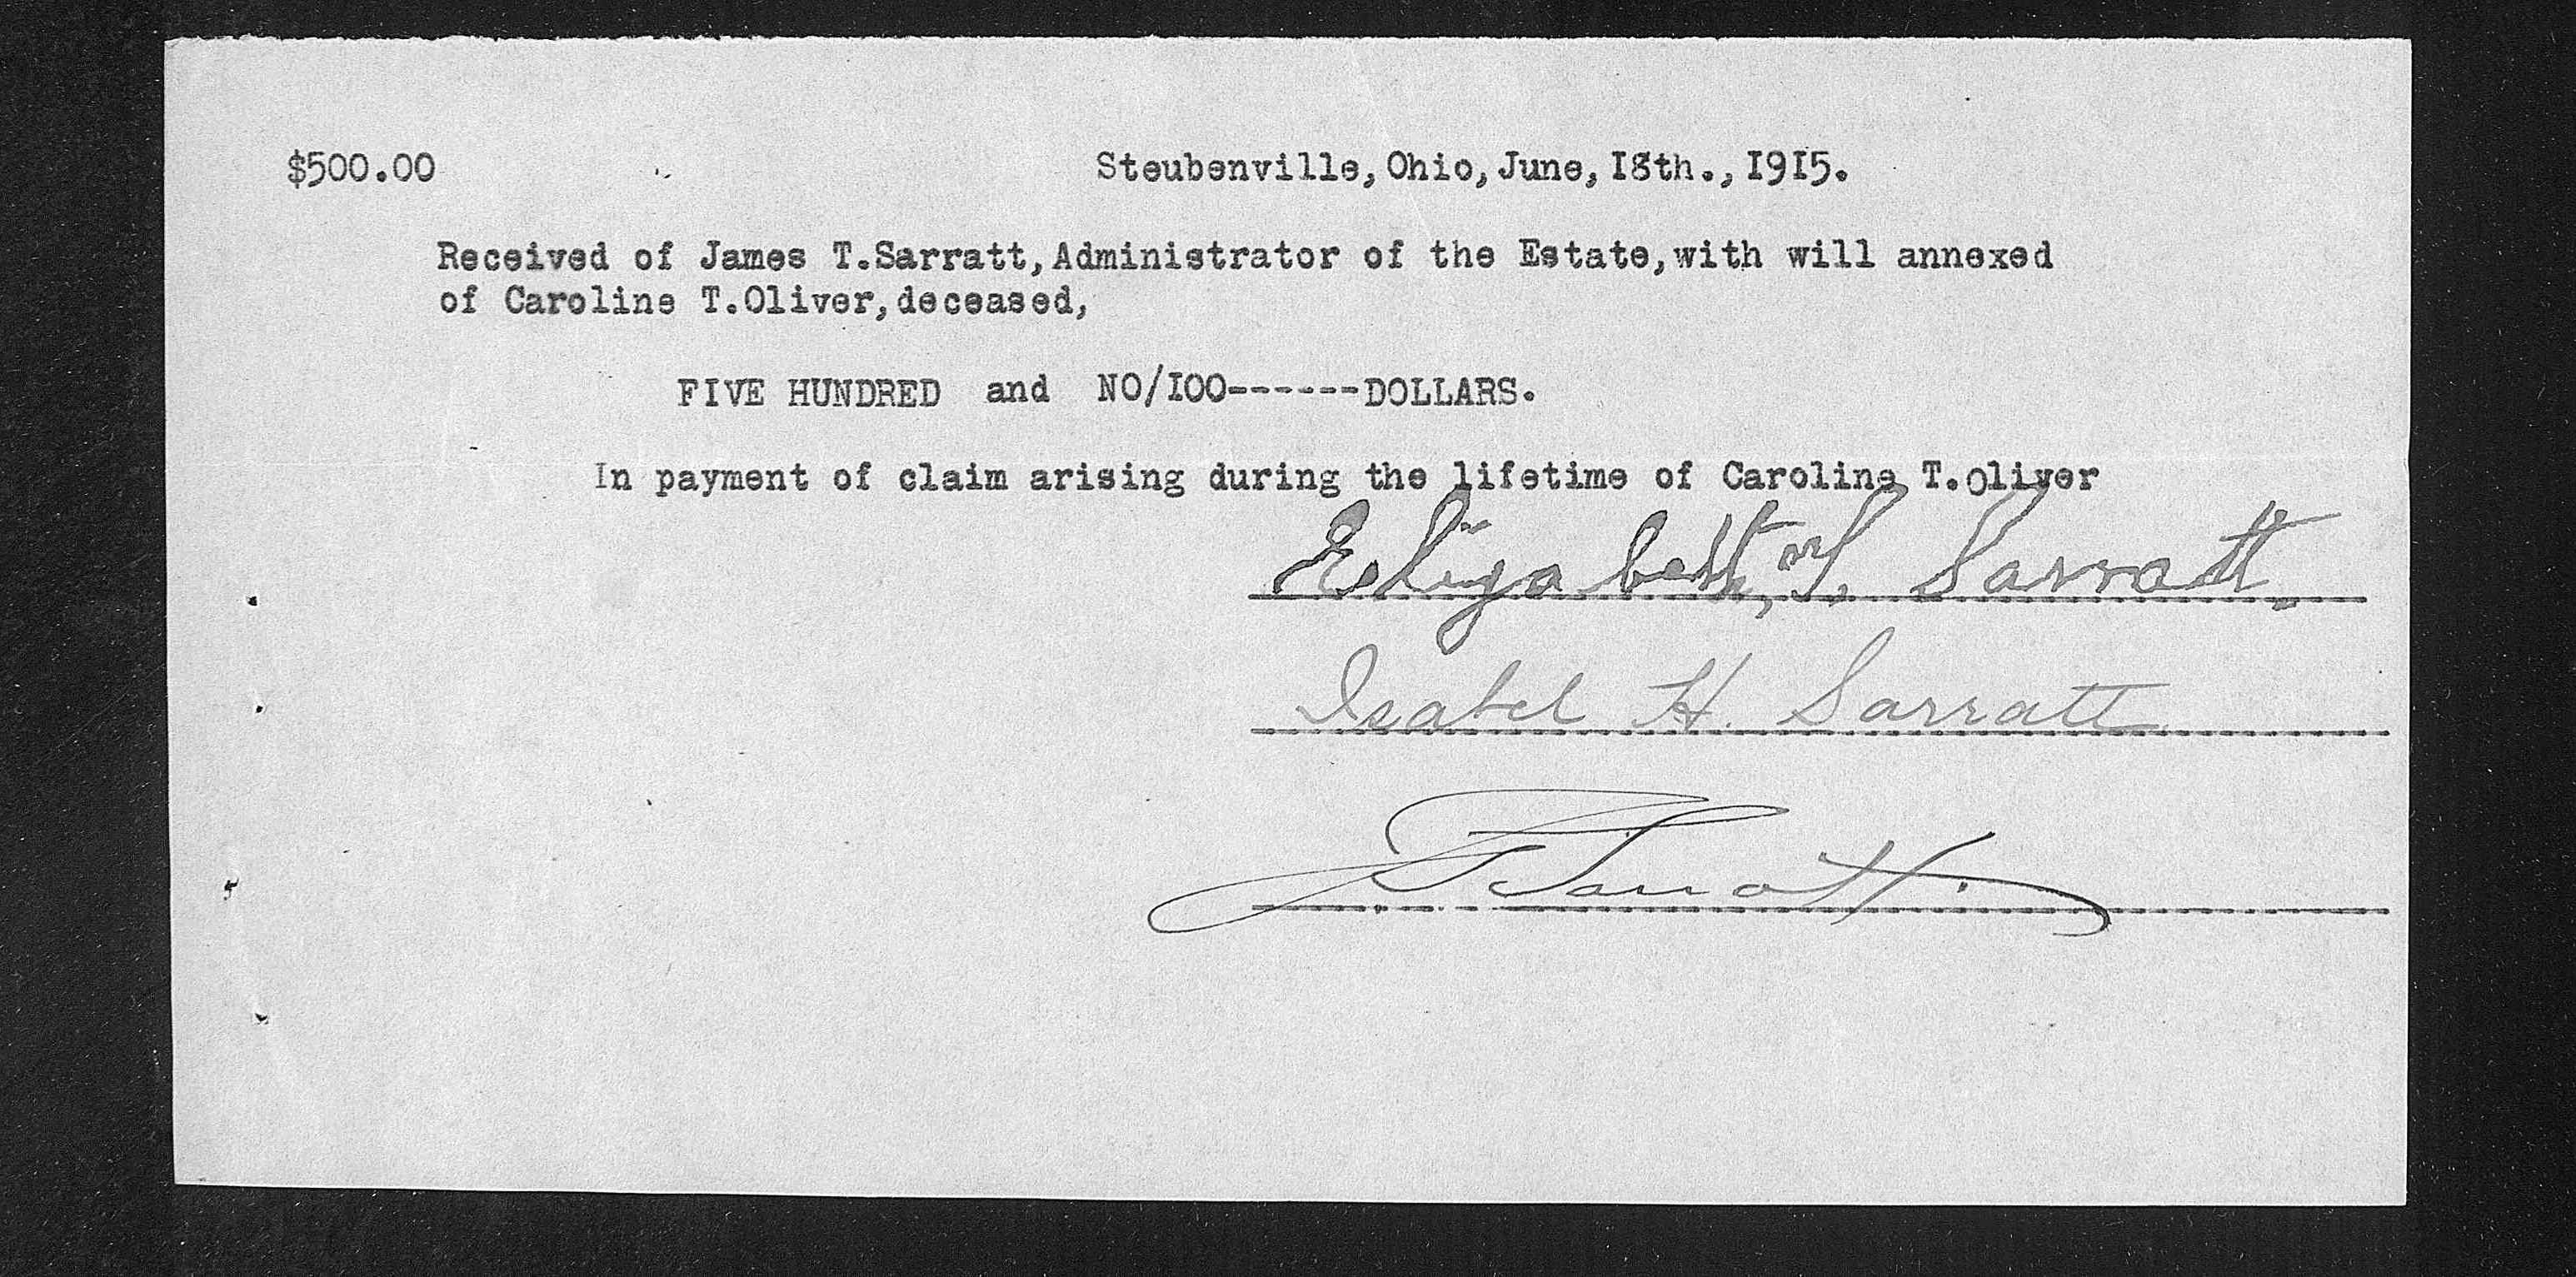 $500.00 Steubenville, Ohio, June, 18th., 1915.
Received of James T. Sarratt, Administrator of the Estate, with will annexed
of Caroline T. Oliver, deceased,
FIVE HUNDRED and NO/100------DOLLARS.
In payment of claim arising during the lifetime of Caroline T. Oliver
Elizabeth, T. Sarratt.
Isabel H. Sarratt
Sarratt.